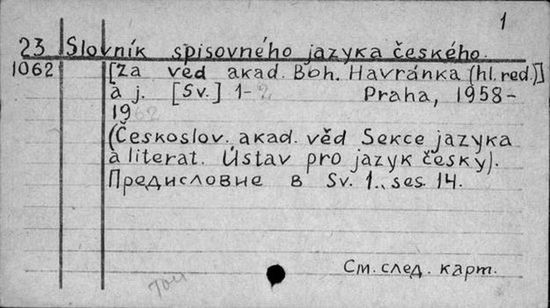 1
23 Slovník spisovného jazyka českého.
1062 [Za věd akad. Boh. Havránka (hl. red.)]
a j. [Sv.] 1-2 Praha, 1958-
1962
(Českoslov. akad. věd Sekce jazyka
a literat. Ústav pro jazyk česky).
Предисловие в Sv. 1., ses. 14.
См. след. карт.